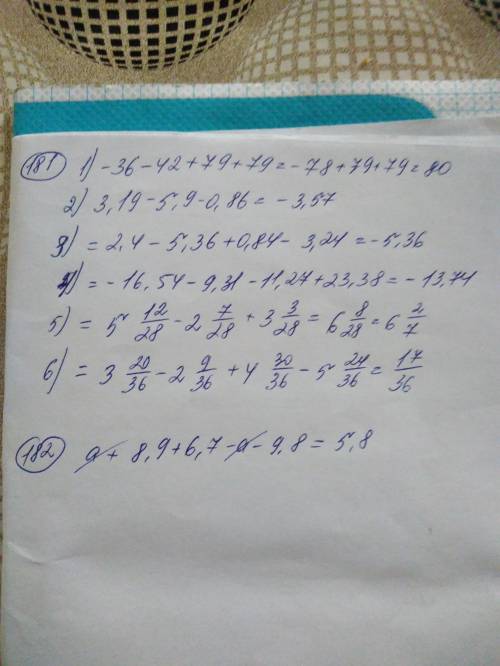 181 1) -36-42+79+79=-78+79+79=80
2) 3,19-5,9-0,86=-3,57
3) =2,4-5,36+0,84-3,24=-5,36
4) =-16,54-9,31-11,27+23,38=-13,74
5) =5 12/28-2 7/28+3 3/28=6 8/28=6 2/7
6) =3 20/36-2 9/36+4 30/36-5 24/36=17/36
182 a+8,9+6,7-a-9,8=5,8